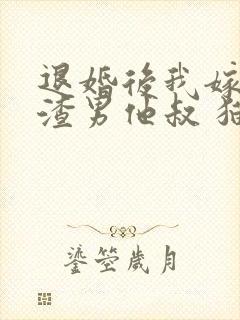 退婚後我嫁
渣男他叔 猫
鎏箜歲月